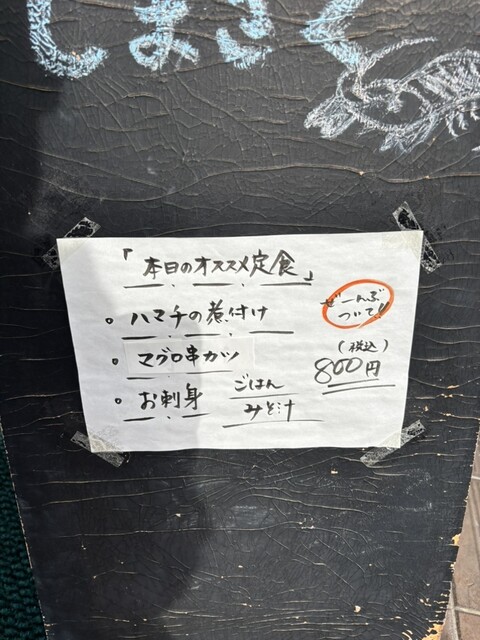 しまさく
「本日のオススメ定食」
ぜーんぶ
ついて!!
・ハマチの煮付け
・マグロ串カツ
(税込)
800円
・お刺身
ごはん
みそ汁